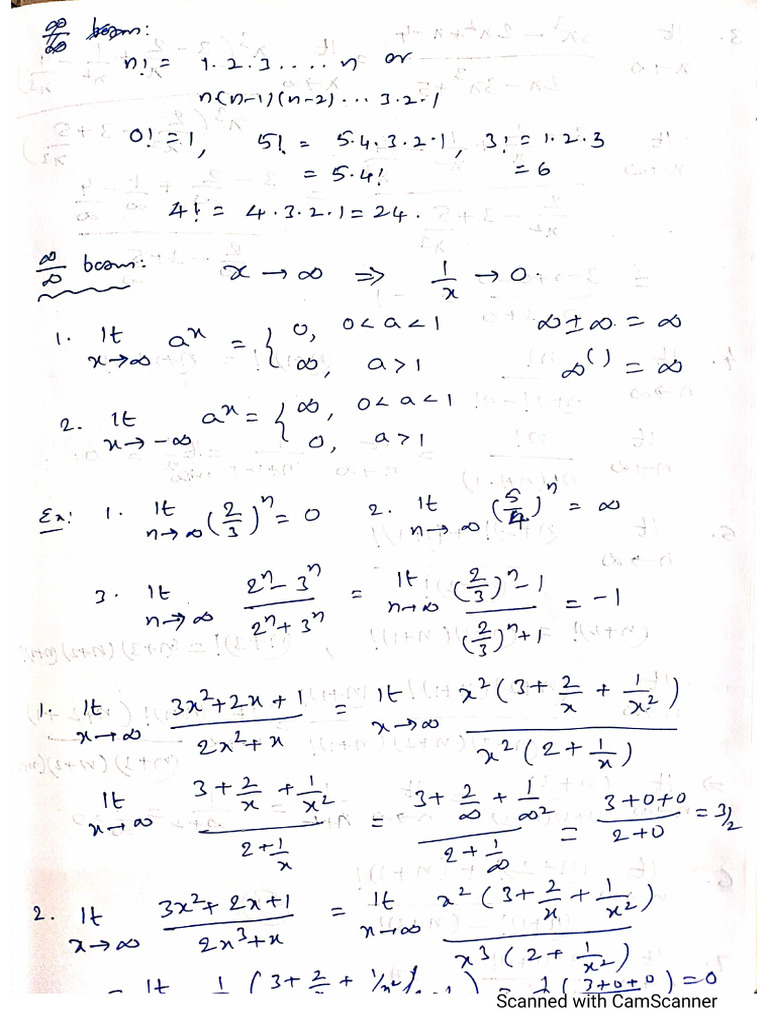 ∞/∞ form:
n! = 1.2.3.....n or
n(n-1)(n-2)...3.2.1
0! = 1, 5! = 5.4.3.2.1, 3! = 1.2.3
= 5.4! = 6
4! = 4.3.2.1 = 24.
∞/∞ form: x → ∞ ⇒ 1/x → 0.
1. lt x→∞ a^x = { 0, 0<a<1 ∞ ± ∞ = ∞
∞, a>1 ∞^( ) = ∞
2. lt x→-∞ a^x = { ∞, 0<a<1
0, a>1
Ex: 1. lt n→∞ (2/3)^n = 0 2. lt n→∞ (5/4)^n = ∞
3. lt n→∞ (2^n - 3^n)/(2^n + 3^n) = lt n→∞ ((2/3)^n - 1)/((2/3)^n + 1) = -1
1. lt x→∞ (3x²+2x+1)/(2x²+x) = lt x→∞ x²(3+2/x+1/x²)/x²(2+1/x)
lt x→∞ (3+2/x+1/x²)/(2+1/x) = (3+2/∞+1/∞²)/(2+1/∞) = (3+0+0)/(2+0) = 3/2
2. lt x→∞ (3x²+2x+1)/(2x³+x) = lt x→∞ x²(3+2/x+1/x²)/x³(2+1/x²)
= lt 1/x (3+2/x+1/x²) = (3+0+0) = 0
Scanned with CamScanner